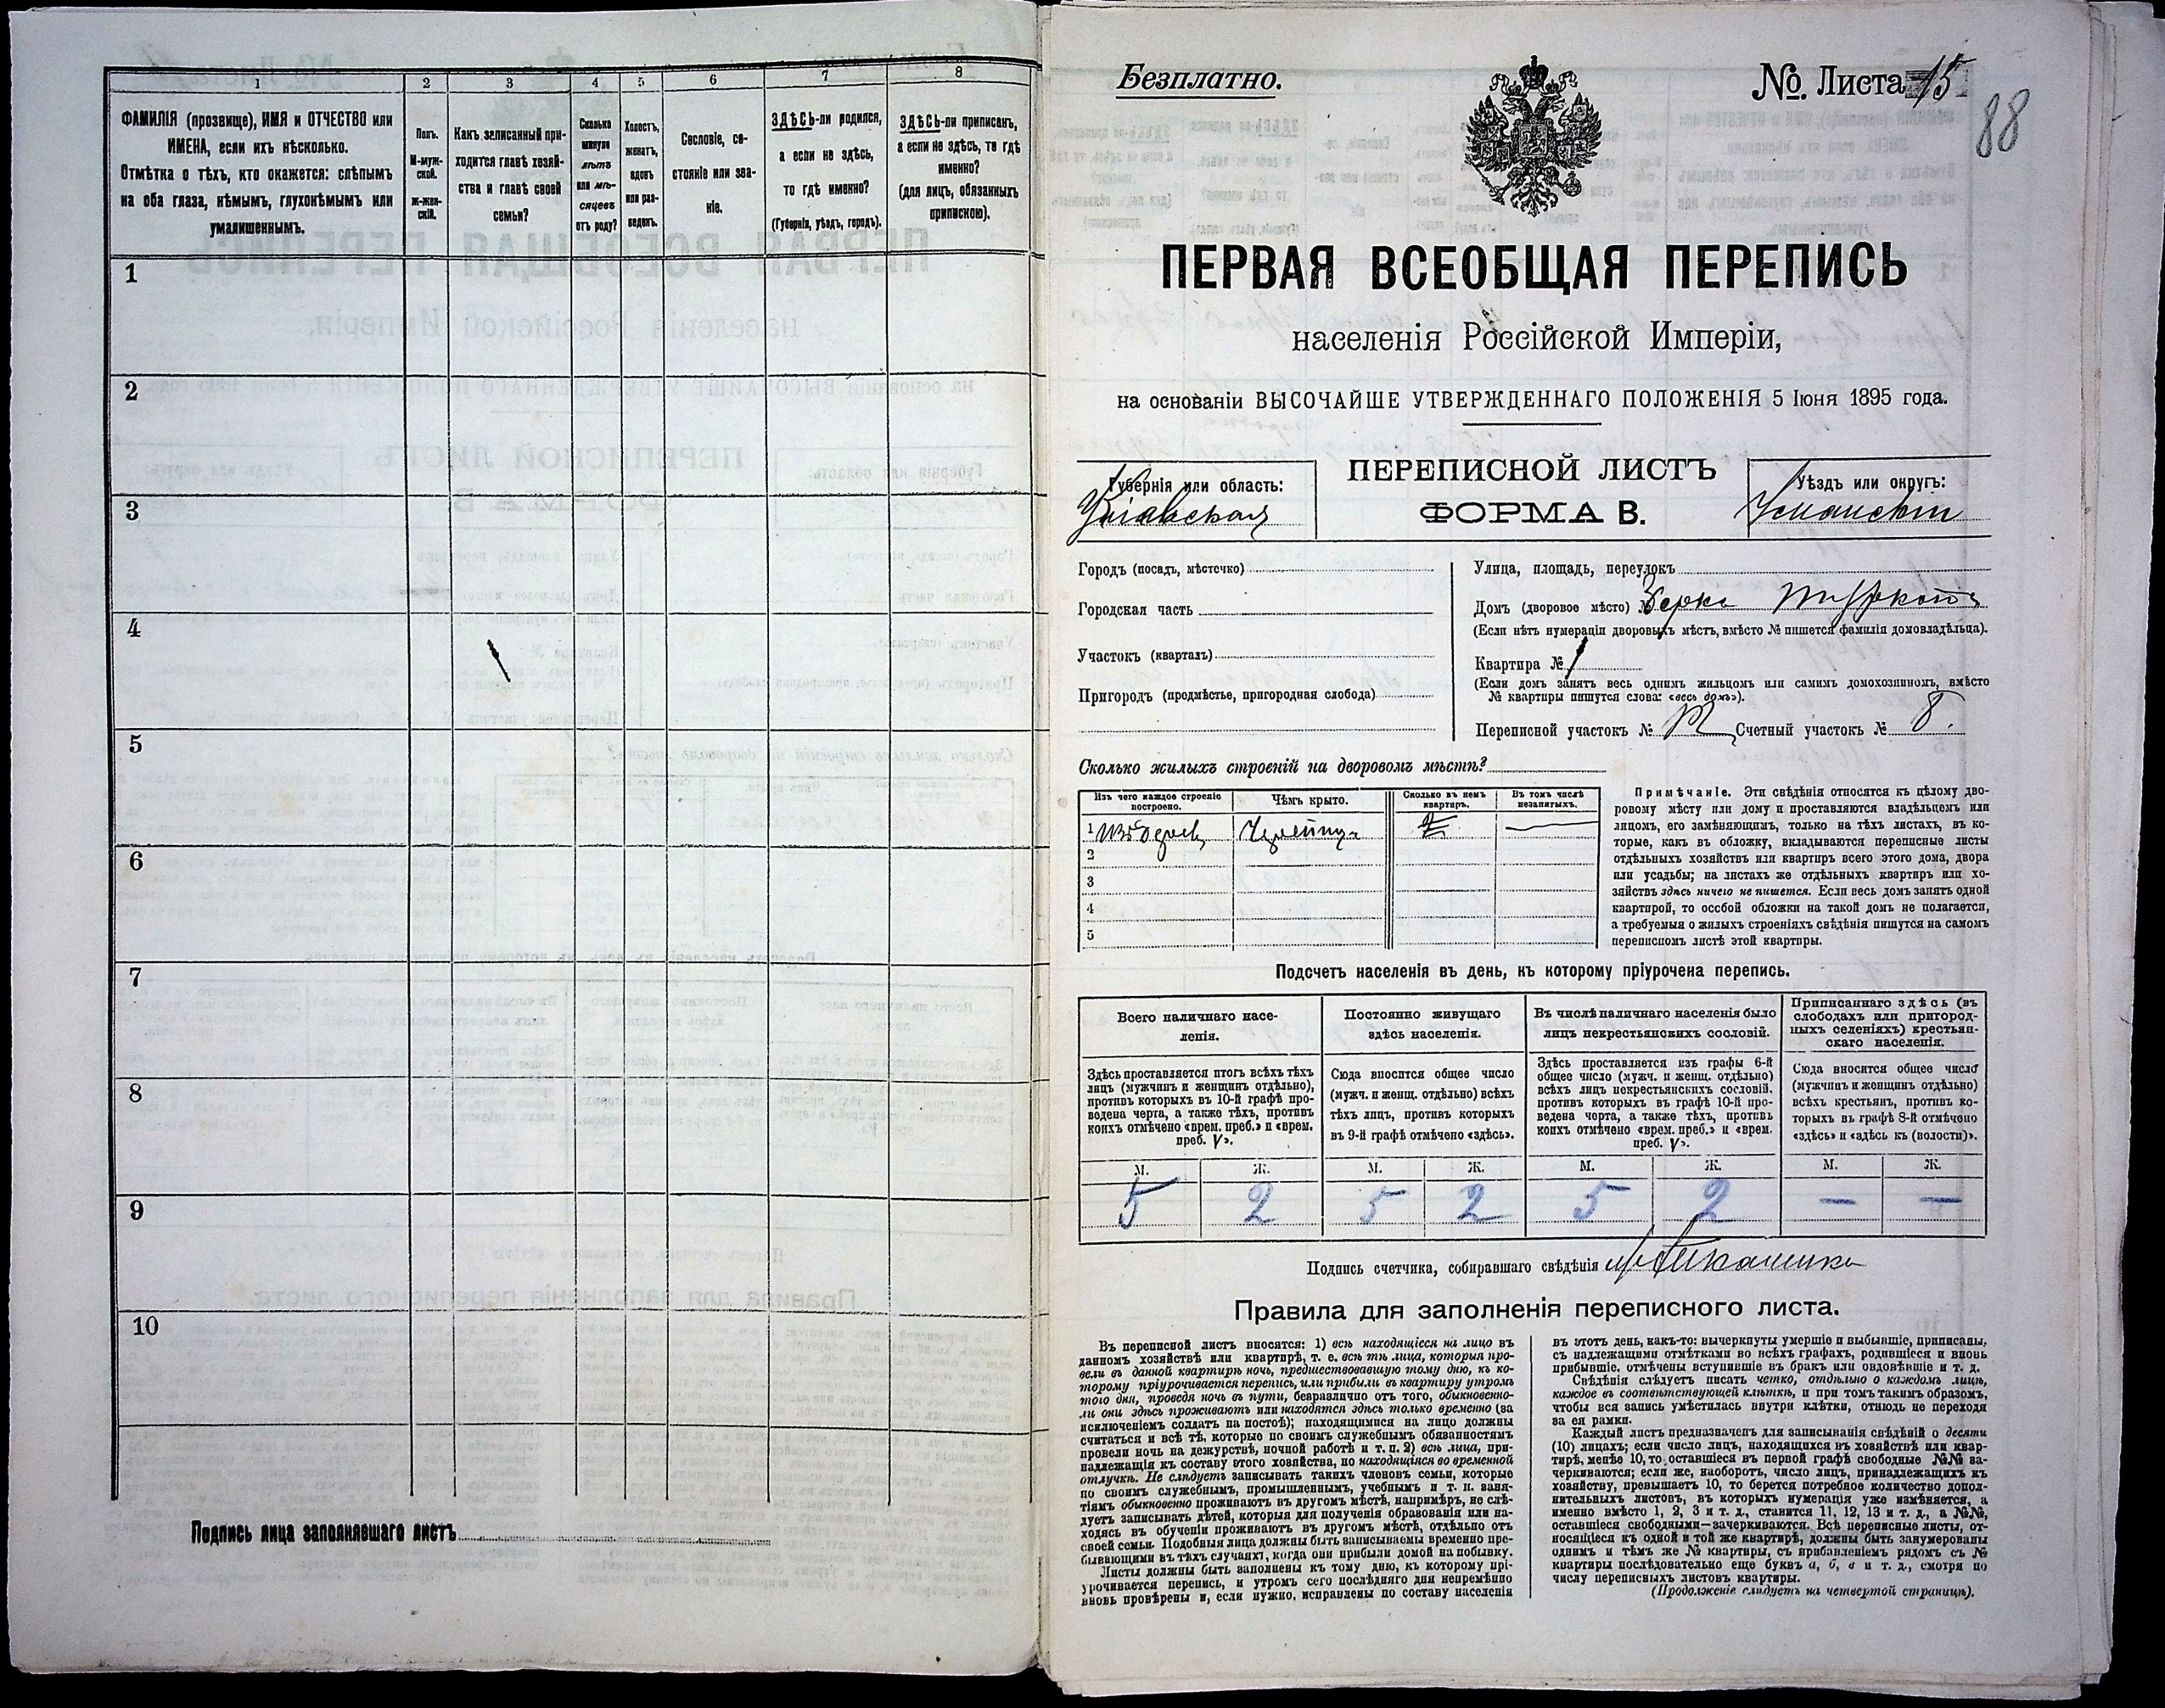 1 2 3 4 5 6 7 8
ФАМИЛІЯ (прозвище), ИМЯ и ОТЧЕСТВО или
ИМЕНА, если ихъ нѣсколько.
Отмѣтка о тѣхъ, кто окажется: слѣпымъ
на оба глаза, нѣмымъ, глухонѣмымъ или
умалишеннымъ.
Полъ.
М-муж-
ской.
ж-жен-
скій.
Какъ записанный при-
ходится главѣ хозяй-
ства и главѣ своей
семьи?
Сколько
минуло
лѣтъ
или мѣ-
сяцевъ
отъ роду?
Холостъ,
женатъ,
вдовъ
или раз-
веденъ.
Сословіе, со-
стояніе или зва-
ніе.
ЗДѢСЬ-ли родился,
а если не здѣсь,
то гдѣ именно?
(Губернія, уѣздъ, городъ).
ЗДѢСЬ-ли приписанъ,
а если не здѣсь, то гдѣ
именно?
(для лицъ, обязанныхъ
припискою).
1
2
3
4
5
6
7
8
9
10
Подпись лица заполнявшаго листъ
Безплатно.
№. Листа 15
88
ПЕРВАЯ ВСЕОБЩАЯ ПЕРЕПИСЬ
населенія Россійской Имперіи,
на основаніи ВЫСОЧАЙШЕ УТВЕРЖДЕННАГО ПОЛОЖЕНІЯ 5 Іюня 1895 года.
Губернія или область:
Кіевская
ПЕРЕПИСНОЙ ЛИСТЪ
ФОРМА В.
Уѣздъ или округъ:
Уманскій
Городъ (посадъ, мѣстечко)
Городская часть
Участокъ (кварталъ)
Пригородъ (предмѣстье, пригородная слобода)
Улица, площадь, переулокъ
Домъ (дворовое мѣсто) № Берка
(Если нѣтъ нумераціи дворовыхъ мѣстъ, вмѣсто № пишется фамилія домовладѣльца).
Квартира № 1
(Если домъ занятъ весь однимъ жильцомъ или самимъ домохозяиномъ, вмѣсто
№ квартиры пишутся слова: «весь домъ»).
Переписной участокъ № Счетный участокъ № 8.
Сколько жилыхъ строеній на дворовомъ мѣстѣ?
Изъ чего каждое строеніе
построено.
Чѣмъ крыто.
Сколько въ немъ
квартиръ.
Въ томъ числѣ
незанятыхъ.
1
2
3
4
5
Примѣчаніе. Эти свѣдѣнія относятся къ цѣлому дво-
ровому мѣсту или дому и проставляются владѣльцемъ или
лицомъ, его замѣняющимъ, только на тѣхъ листахъ, въ ко-
торые, какъ въ обложку, вкладываются переписные листы
отдѣльныхъ хозяйствъ или квартиръ всего этого дома, двора
или усадьбы; на листахъ же отдѣльныхъ квартиръ или хо-
зяйствъ здѣсь ничего не пишется. Если весь домъ занятъ одной
квартирой, то особой обложки на такой домъ не полагается,
а требуемыя о жилыхъ строеніяхъ свѣдѣнія пишутся на самомъ
переписномъ листѣ этой квартиры.
Подсчетъ населенія въ день, къ которому пріурочена перепись.
Всего наличнаго насе-
ленія.
Здѣсь проставляется итогъ всѣхъ тѣхъ
лицъ (мужчинъ и женщинъ отдѣльно),
противъ которыхъ въ 10-й графѣ про-
ведена черта, а также тѣхъ, противъ
коихъ отмѣчено «врем. преб.» и «врем.
преб. V».
Постоянно живущаго
здѣсь населенія.
Сюда вносится общее число
(мужч. и женщ. отдѣльно) всѣхъ
тѣхъ лицъ, противъ которыхъ
въ 9-й графѣ отмѣчено «здѣсь».
Въ числѣ наличнаго населенія было
лицъ некрестьянскихъ сословій.
Здѣсь проставляется изъ графы 6-й
общее число (мужч. и женщ. отдѣльно)
всѣхъ лицъ некрестьянскихъ сословій.
противъ которыхъ въ графѣ 10-й про-
ведена черта, а также тѣхъ, противъ
коихъ отмѣчено «врем. преб.» и «врем.
преб. V».
Приписаннаго здѣсь (въ
слободахъ или пригород-
ныхъ селеніяхъ) крестьян-
скаго населенія.
Сюда вносится общее число
(мужчинъ и женщинъ отдѣльно)
всѣхъ крестьянъ, противъ ко-
торыхъ въ графѣ 8-й отмѣчено
«здѣсь» и «здѣсь къ (волости)».
М. Ж. М. Ж. М. Ж. М. Ж.
5 2 5 2 5 2 — —
Подпись счетчика, собиравшаго свѣдѣнія
Правила для заполненія переписного листа.
Въ переписной листъ вносятся: 1) всѣ находящіеся на лицо въ
данномъ хозяйствѣ или квартирѣ, т. е. всѣ тѣ лица, которыя про-
вели въ данной квартирѣ ночь, предшествовавшую тому дню, къ ко-
торому пріурочивается перепись, или прибыли въ квартиру утромъ
того дня, проведя ночь въ пути, безразлично отъ того, обыкновенно-
ли они здѣсь проживаютъ или находятся здѣсь только временно (за
исключеніемъ солдатъ на постоѣ); находящимися на лицо должны
считаться и всѣ тѣ, которые по своимъ служебнымъ обязанностямъ
провели ночь на дежурствѣ, ночной работѣ и т. п. 2) всѣ лица, при-
надлежащія къ составу этого хозяйства, но находящіяся во временной
отлучкѣ. Не слѣдуетъ записывать такихъ членовъ семьи, которые
по своимъ служебнымъ, промышленнымъ, учебнымъ и т. п. заня-
тіямъ обыкновенно проживаютъ въ другомъ мѣстѣ, напримѣръ, не слѣ-
дуетъ записывать дѣтей, которыя для полученія образованія или на-
ходясь въ обученіи проживаютъ въ другомъ мѣстѣ, отдѣльно отъ
своей семьи. Подобныя лица должны быть записываемы временно пре-
бывающими въ тѣхъ случаяхъ, когда они прибыли домой на побывку.
Листы должны быть заполнены къ тому дню, къ которому прі-
урочивается перепись, и утромъ сего послѣдняго дня непремѣнно
вновь провѣрены и, если нужно, исправлены по составу населенія
въ этотъ день, какъ-то: вычеркнуты умершіе и выбывшіе, приписаны,
съ надлежащими отмѣтками во всѣхъ графахъ, родившіеся и вновь
прибывшіе, отмѣчены вступившіе въ бракъ или овдовѣвшіе и т. д.
Свѣдѣнія слѣдуетъ писать четко, отдѣльно о каждомъ лицѣ,
каждое въ соотвѣтствующей клѣткѣ, и при томъ такимъ образомъ,
чтобы вся запись умѣстилась внутри клѣтки, отнюдь не переходя
за ея рамки.
Каждый листъ предназначенъ для записыванія свѣдѣній о десяти
(10) лицахъ; если число лицъ, находящихся въ хозяйствѣ или квар-
тирѣ, менѣе 10, то оставшіеся въ первой графѣ свободные №№ за-
черкиваются; если же, наоборотъ, число лицъ, принадлежащихъ къ
хозяйству, превышаетъ 10, то берется потребное количество допол-
нительныхъ листовъ, въ которыхъ нумерація уже измѣняется, а
именно вмѣсто 1, 2, 3 и т. д., ставится 11, 12, 13 и т. д., а №№,
оставшіеся свободными—зачеркиваются. Всѣ переписные листы, от-
носящіеся къ одной и той же квартирѣ, должны быть занумерованы
однимъ и тѣмъ же № квартиры, съ прибавленіемъ рядомъ съ №
квартиры послѣдовательно еще буквъ а, б, в и т. д., смотря по
числу переписныхъ листовъ квартиры.
(Продолженіе слѣдуетъ на четвертой страницѣ).